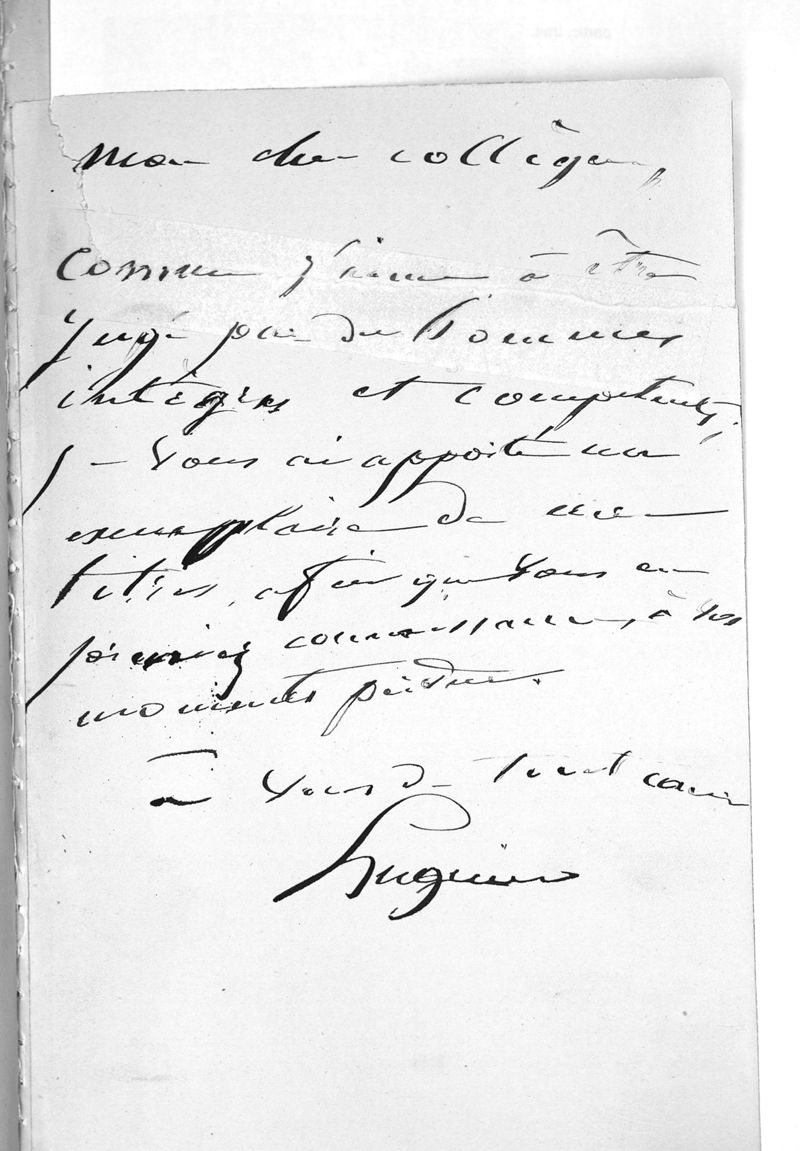 Mon cher collègue,
Comme j'aime à être
jugé par des hommes
intègres et compétents,
je vous ai apporté un
exemplaire de mes
titres, afin que vous en
preniez connaissance, à vos
moments perdus.
à vous de tout cœur
Huguier